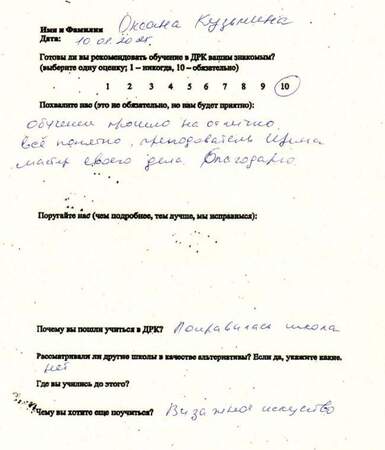 Имя и Фамилия Оксана Кузьмина.
Дата: 10.01.20
Готовы ли вы рекомендовать обучение в ДРК вашим знакомым?
(выберите одну оценку; 1 – никогда, 10 – обязательно)
1 2 3 4 5 6 7 8 9 10
Похвалите нас (это не обязательно, но нам будет приятно):
обучение прошло на отлично
всё понятно, преподователь Ирина
мастер своего дела. Благодарю.
Поругайте нас (чем подробнее, тем лучше, мы исправимся):
Почему вы пошли учиться в ДРК? Понравилась школа
Рассматривали ли другие школы в качестве альтернативы? Если да, укажите какие.
нет
Где вы учились до этого?
Чему вы хотите еще поучиться? Визажное искуство